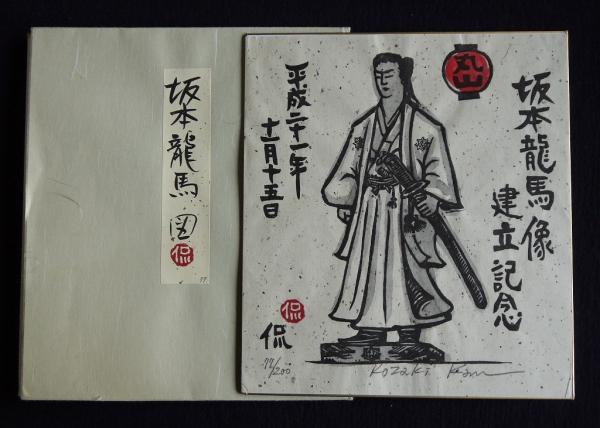 坂本龍馬
図
侃
77.
丸山
坂本龍馬像
建立記念
平成二十一年
十一月十五日
侃
侃
77/200
Kozaki Kan